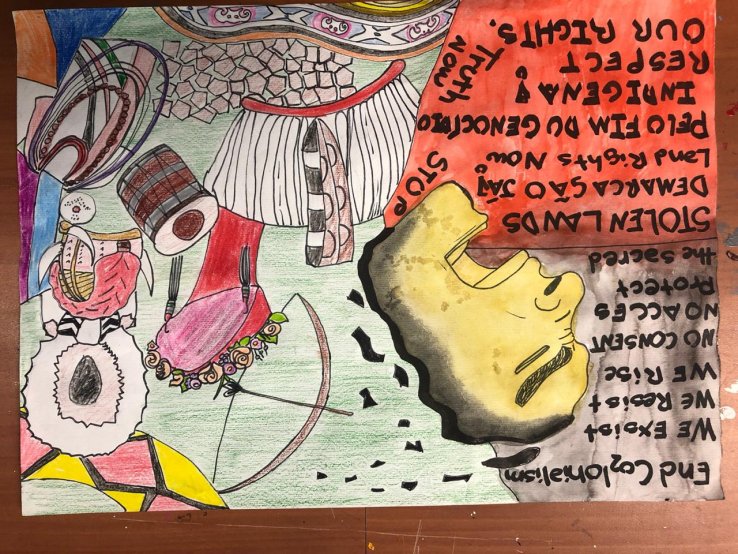 End Colonialism
WE Exsist
We Resist
WE Rise
NO CONSENT
NO ACCES
Protect
the Sacred
STOLEN LANDS
STOP
DEMARCAÇÃO JÁ!
Land Rights Now
PELO FIM DU GENOCÍDIO
INDIGENA!
RESPECT
OUR RIGHTS.
Truth
NOW